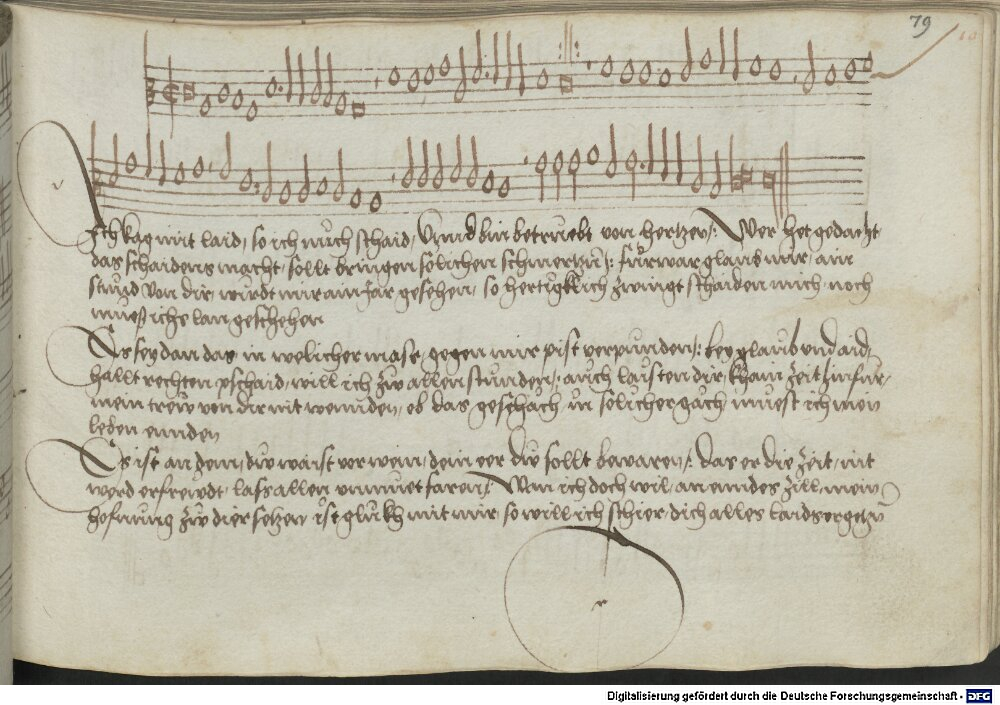 79
Ich klag mit laid, so ich mich schaid, Unnd bin betruebt von hertzen /: Wer het gedacht
das schaidens macht, sollt bringen solichen schmertzn /: fürwar glaub mir, ain
stund von dir, wurdt mir ain Jar gesehen, so hertigklich zwingt schaiden mich, noch
mueß ichs lan geschehen
Es sey dan das, in welicher mass, gegen mir pist verpunden /: bey glaub und aid,
hallt rechten pschaid, will ich zw allen stunden /: auch laisten dir, khain Zeit hinfür,
mein trew von dir nit wennden, ob das geschach, in solicher gach, muest ich mein
leben ennden
Es ist an dem, dw waist vor wem, dein eer dw sollt bewaren /: das er die Zeit, nit
werd erfrewdt, lass allen unmuet faren /: Wan ich doch wil, an enndes Zill, mein
hofnung zw dier setzen, ist glückh mit mir, so will ich schier, dich alles laids ergetzn
Digitalisierung gefördert durch die Deutsche Forschungsgemeinschaft - DFG